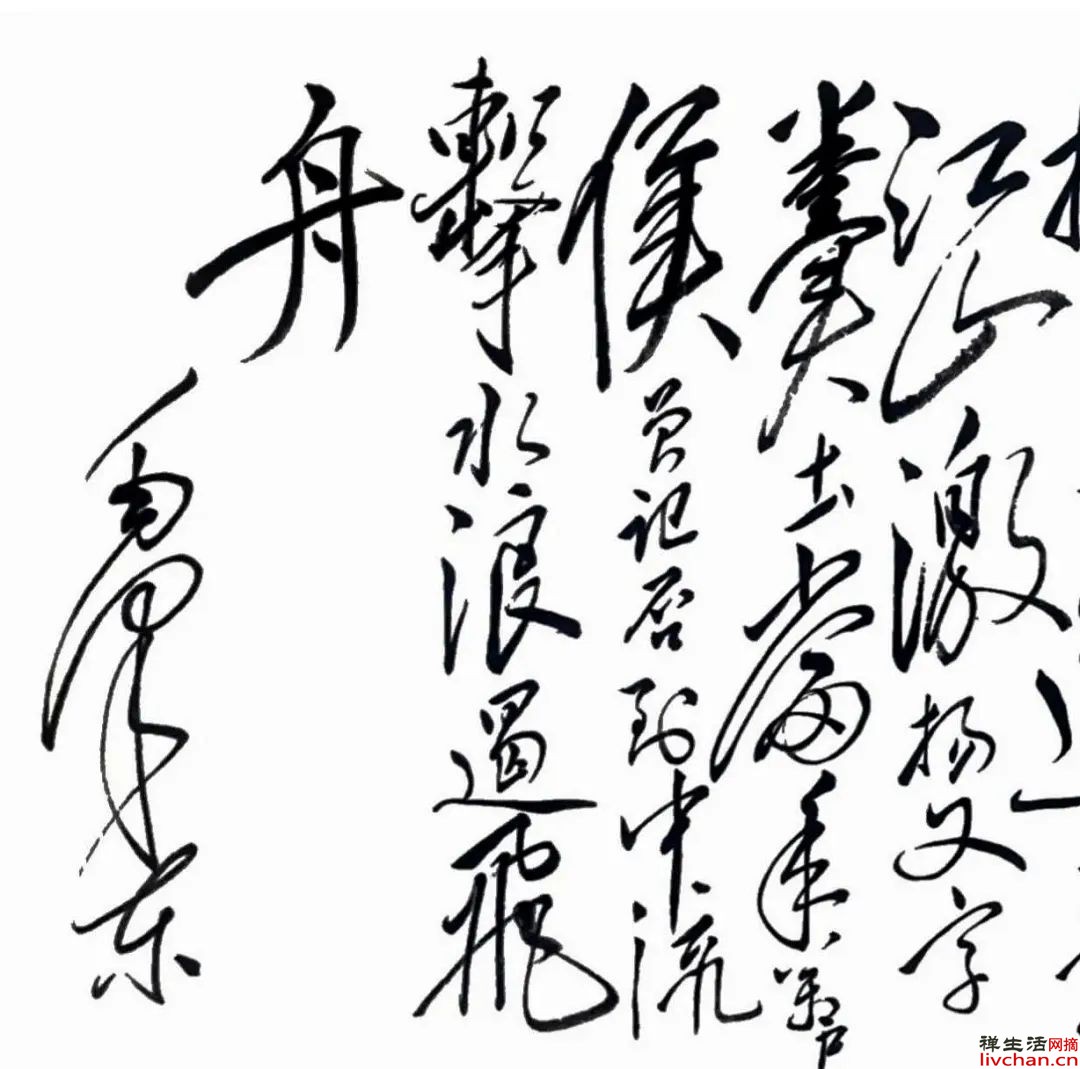 江山激揚文字
糞土當年萬户
侯曾記否到中流
擊水浪遏飛
舟
毛澤东
禅生活网摘
livchan.cn